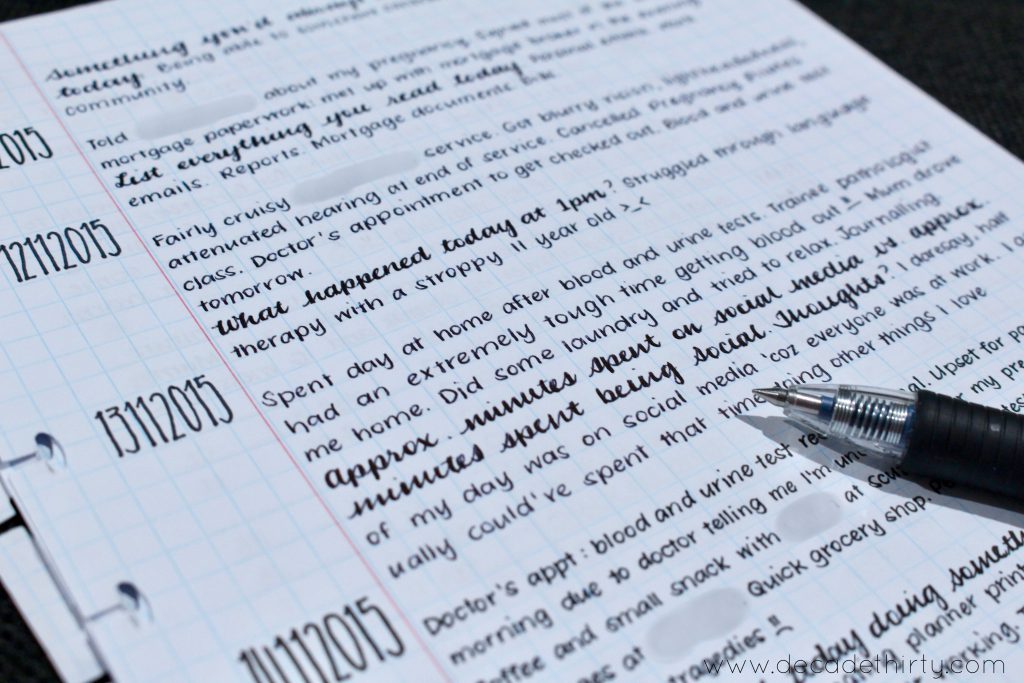 something you'd always
today. Being able to
community
Told about my pregnancy.
mortgage paperwork: met up with mortgage broker in the evening.
List everything you read today. Personal emails. Work
emails. Reports. Mortgage documents.
12112015
Fairly cruisy service. Got blurry vision, lightheadedness,
attenuated hearing at end of service. Cancelled Pregnancy Pilates
class. Doctor's appointment to get checked out. Blood and urine test
tomorrow.
What happened today at 1pm? Struggled through language
therapy with a stroppy 11 year old >_<
13112015
Spent day at home after blood and urine tests. Trainee pathologist
had an extremely tough time getting blood out Mum drove
me home. Did some laundry and tried to relax. Journalling.
approx. minutes spent on social media vs. approx.
minutes spent being social. Thoughts? I daresay, half
of my day was on social media 'coz everyone was at work. I
ually could've spent that time doing other things I love
14112015
Doctor's appt: blood and urine test Upset for
morning due to doctor telling me I'm my
coffee and small snack with at
at Quick grocery shop.
tragedies
today doing something
planner
working.
www.decadethirty.com